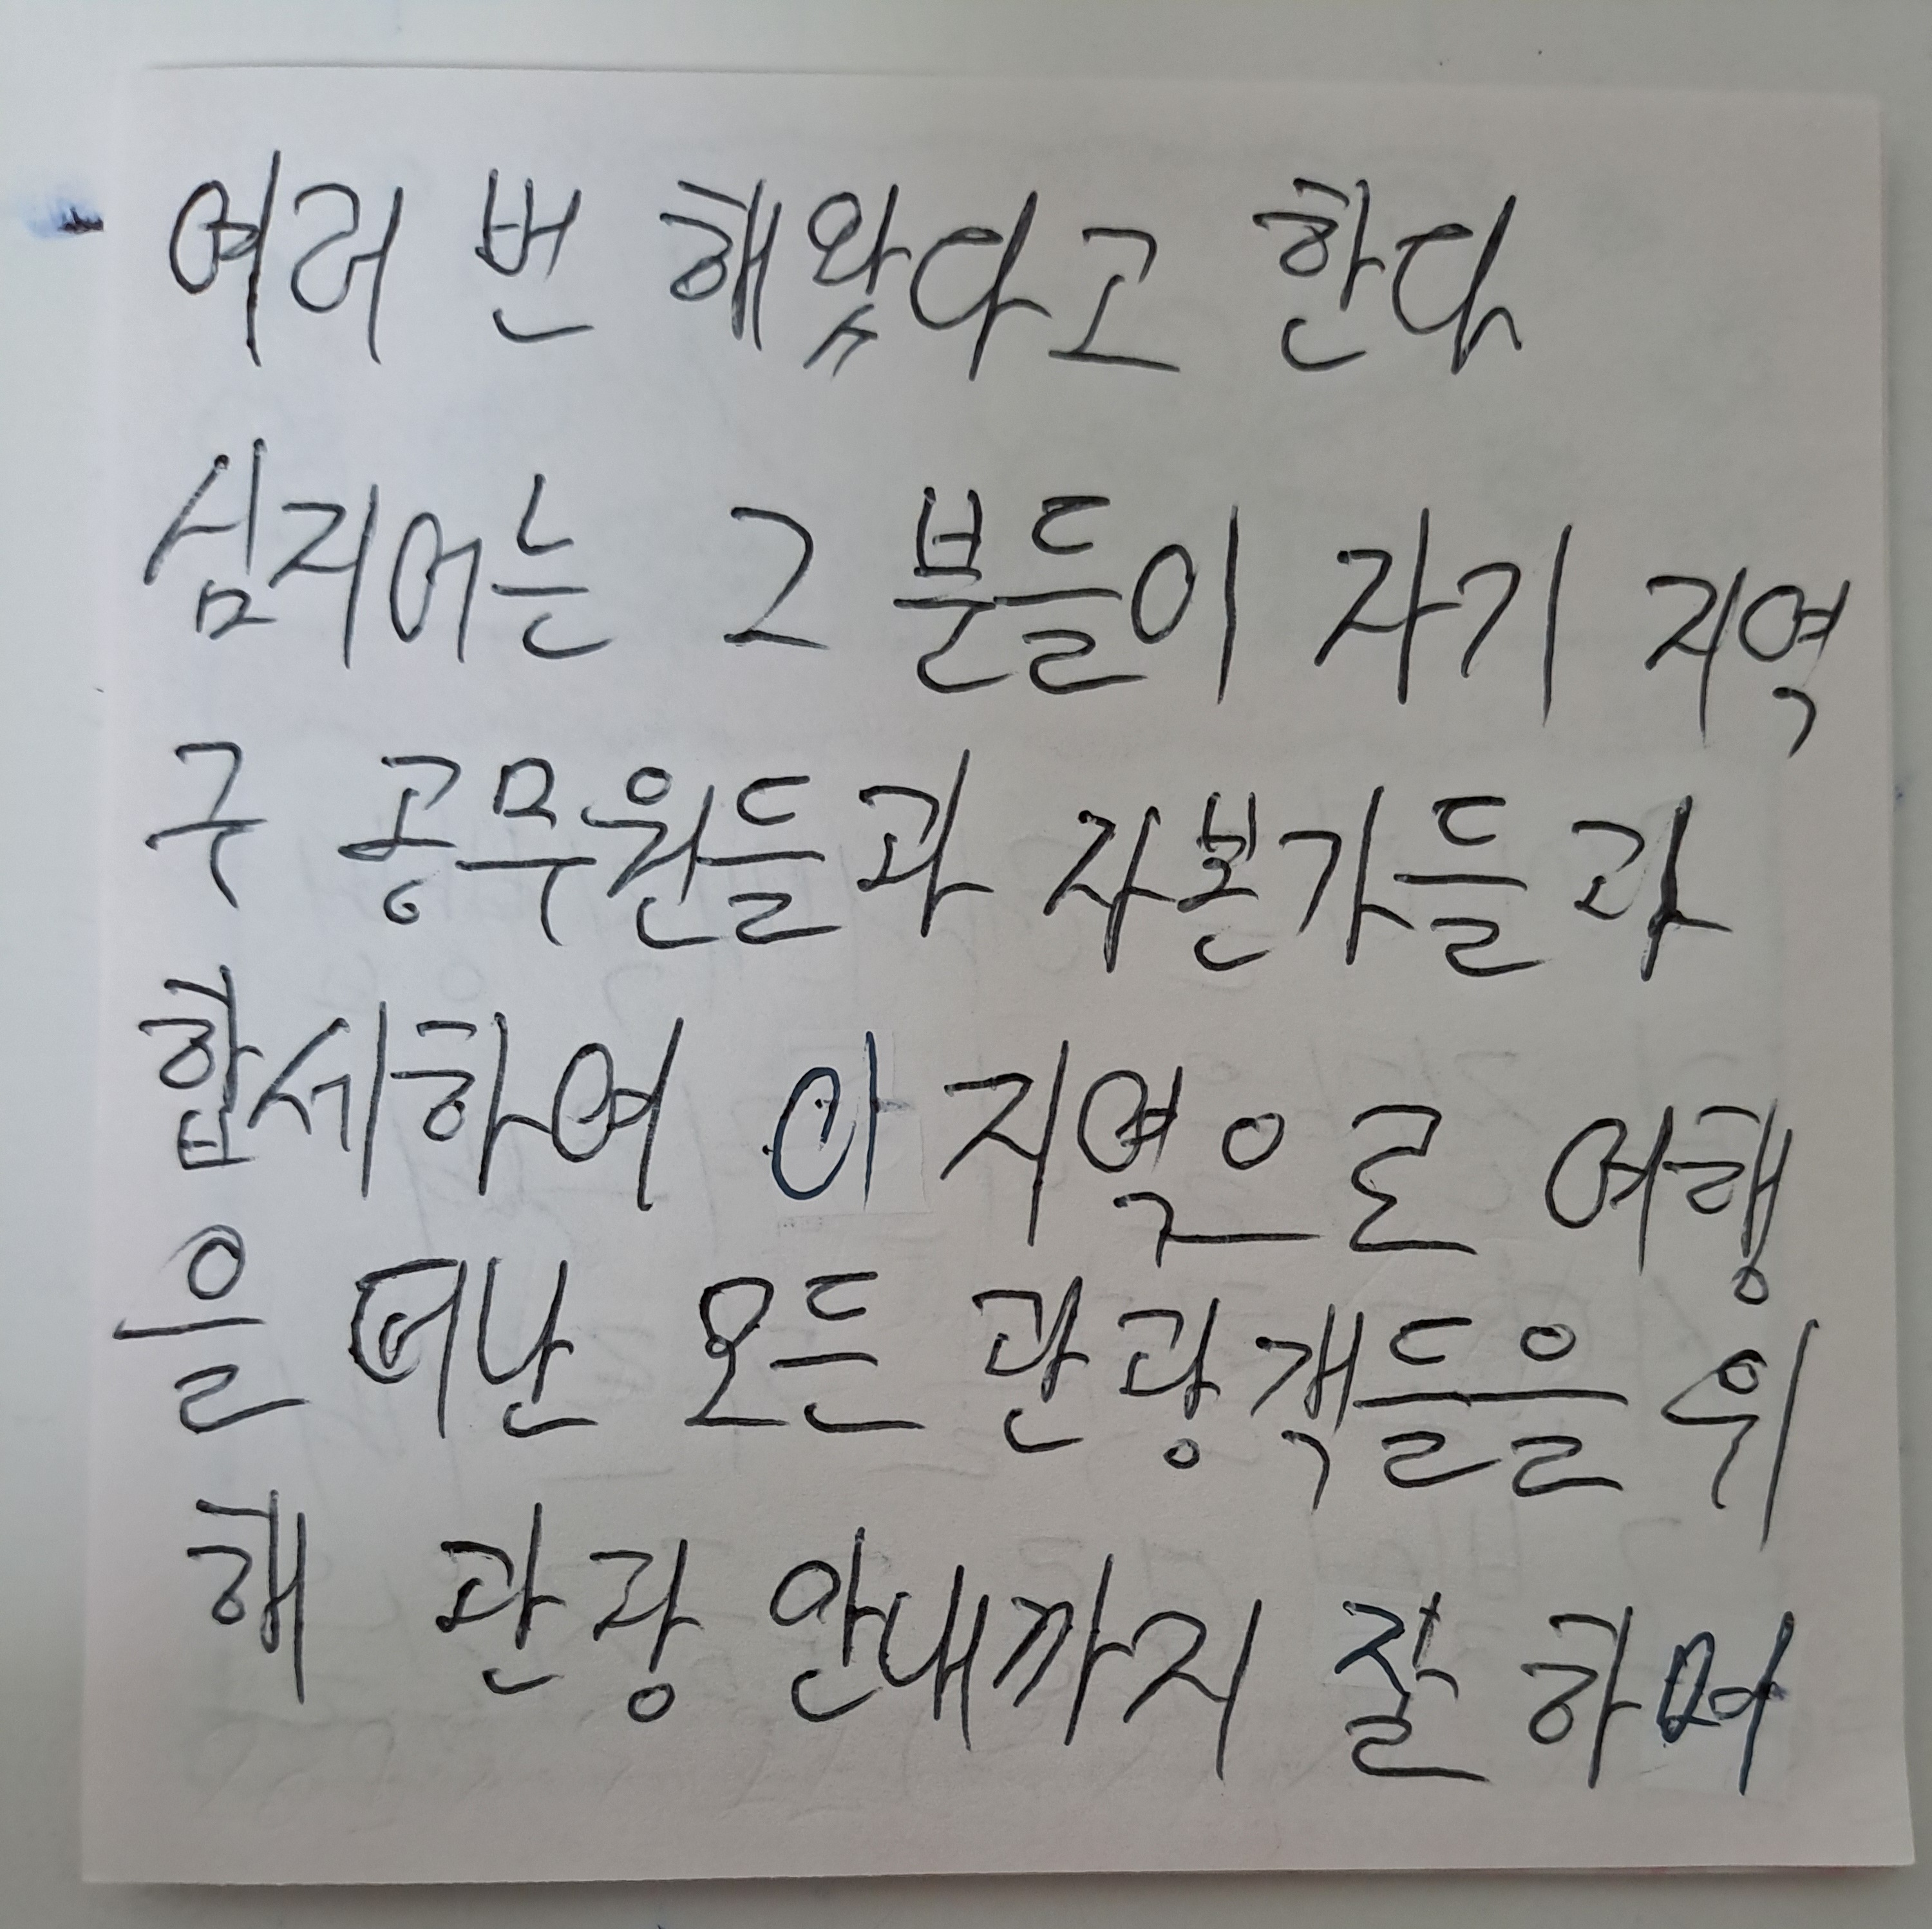 여러 번 해왔다고 한다.
심지어는 그 분들이 자기 지역
구 공무원들과 자본가들과
합세하여 이 지역으로 여행
을 떠난 모든 관광객들을 위
해 관광 안내까지 잘 하며